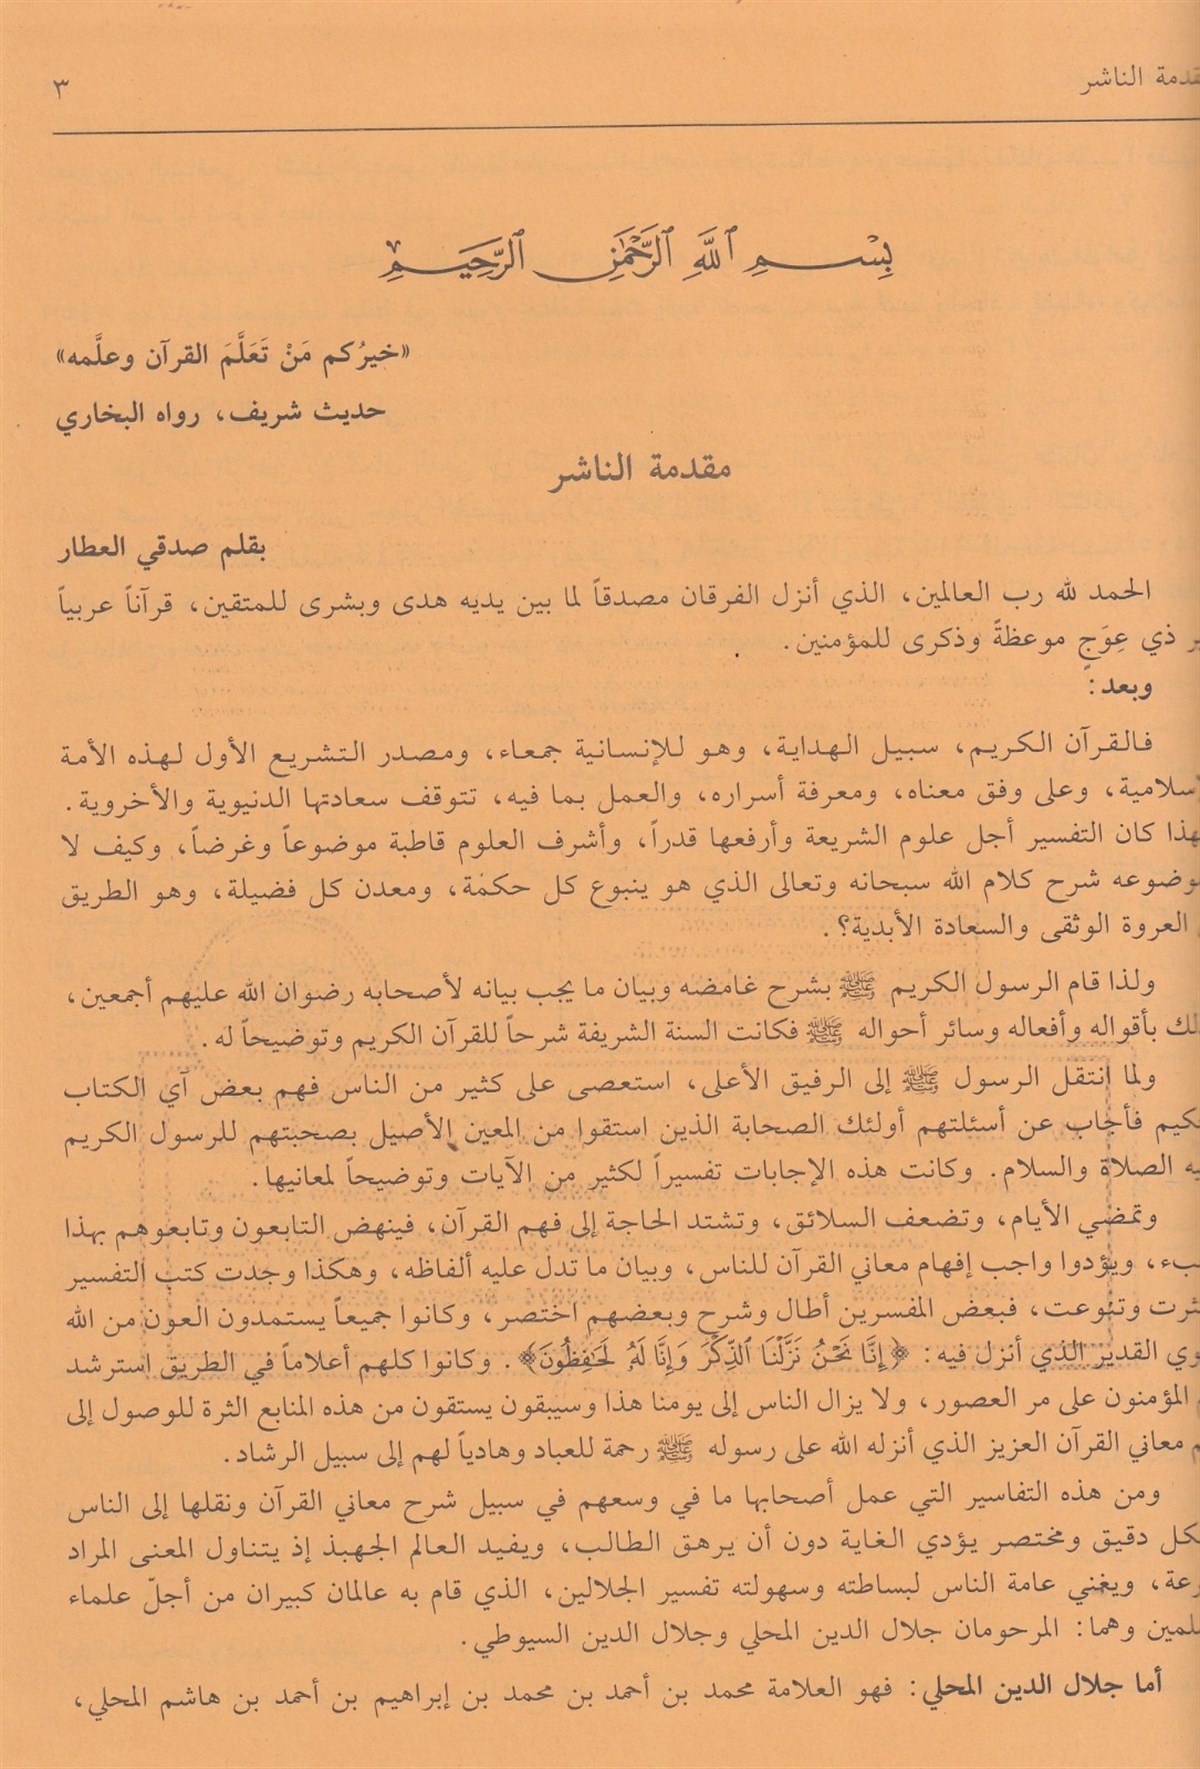 قدمة الناشر
٣
بِسْمِ ٱللَّهِ ٱلرَّحْمَٰنِ ٱلرَّحِيمِ
«خيرُكم مَنْ تَعَلَّمَ القرآن وعلَّمه»
حديث شريف، رواه البخاري
مقدمة الناشر
بقلم صدقي العطار
الحمد لله رب العالمين، الذي أنزل الفرقان مصدقاً لما بين يديه هدى وبشرى للمتقين، قرآناً عربياً
ر ذي عِوَجٍ موعظةً وذكرى للمؤمنين.
وبعد:
فالقرآن الكريم، سبيل الهداية، وهو للإنسانية جمعاء، ومصدر التشريع الأول لهذه الأمة
إسلامية، وعلى وفق معناه، ومعرفة أسراره، والعمل بما فيه، تتوقف سعادتها الدنيوية والأخروية.
هذا كان التفسير أجل علوم الشريعة وأرفعها قدراً، وأشرف العلوم قاطبة موضوعاً وغرضاً، وكيف لا
وضوعه شرح كلام الله سبحانه وتعالى الذي هو ينبوع كل حكمة، ومعدن كل فضيلة، وهو الطريق
العروة الوثقى والسعادة الأبدية؟.
ولذا قام الرسول الكريم ﷺ بشرح غامضه وبيان ما يجب بيانه لأصحابه رضوان الله عليهم أجمعين،
لك بأقواله وأفعاله وسائر أحواله ﷺ فكانت السنة الشريفة شرحاً للقرآن الكريم وتوضيحاً له.
ولما انتقل الرسول ﷺ إلى الرفيق الأعلى، استعصى على كثير من الناس فهم بعض آي الكتاب
كيم فأجاب عن أسئلتهم أولئك الصحابة الذين استقوا من المعين الأصيل بصحبتهم للرسول الكريم
يه الصلاة والسلام. وكانت هذه الإجابات تفسيراً لكثير من الآيات وتوضيحاً لمعانيها.
وتمضي الأيام، وتضعف السلائق، وتشتد الحاجة إلى فهم القرآن، فينهض التابعون وتابعوهم بهذا
بء، ويؤدوا واجب إفهام معاني القرآن للناس، وبيان ما تدل عليه ألفاظه، وهكذا وجدت كتب التفسير
ثرت وتنوعت، فبعض المفسرين أطال وشرح وبعضهم اختصر، وكانوا جميعاً يستمدون العون من الله
وي القدير الذي أنزل فيه: ﴿إِنَّا نَحْنُ نَزَّلْنَا ٱلذِّكْرَ وَإِنَّا لَهُۥ لَحَٰفِظُونَ﴾. وكانوا كلهم أعلاماً في الطريق استرشد
المؤمنون على مر العصور، ولا يزال الناس إلى يومنا هذا وسيبقون يستقون من هذه المنابع الثرة للوصول إلى
م معاني القرآن العزيز الذي أنزله الله على رسوله ﷺ رحمة للعباد وهادياً لهم إلى سبيل الرشاد.
ومن هذه التفاسير التي عمل أصحابها ما في وسعهم في سبيل شرح معاني القرآن ونقلها إلى الناس
كل دقيق ومختصر يؤدي الغاية دون أن يرهق الطالب، ويفيد العالم الجهبذ إذ يتناول المعنى المراد
رعة، ويغني عامة الناس لبساطته وسهولته تفسير الجلالين، الذي قام به عالمان كبيران من أجلّ علماء
لمين وهما: المرحومان جلال الدين المحلي وجلال الدين السيوطي.
أما جلال الدين المحلي: فهو العلامة محمد بن أحمد بن محمد بن إبراهيم بن أحمد بن هاشم المحلي،